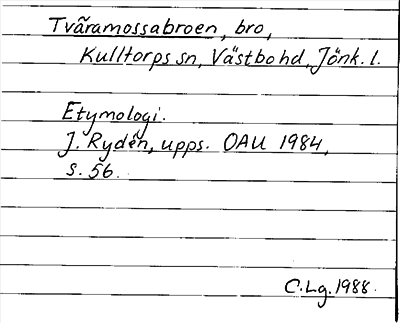 Tväramossabroen, bro,
Kulltorps sn, Västbo hd, Jönk. l.
Etymologi.
J. Rydén, upps. OAU 1984,
s. 56.
C. Lg. 1988.